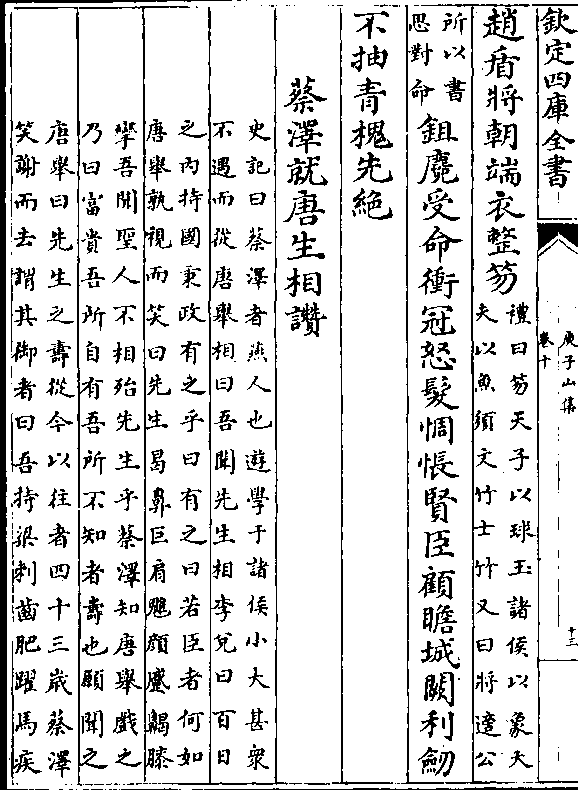 欽定四庫全書
庾子山集
卷十
十三
趙盾將朝端衣整笏
禮曰笏天子以球玉諸侯以象大
夫以魚須文竹士竹又曰將適公
所以書
思對命
鉏麑受命衝冠怒髮惆悵賢臣顧瞻城闕利劒
不抽青槐先絶
蔡澤就唐生相讚
史記曰蔡澤者燕人也遊學于諸侯小大甚衆
不遇而從唐舉相曰吾聞先生相李兌曰百日
之內持國秉政有之乎曰有之曰若臣者何如
唐舉孰視而笑曰先生曷鼻巨肩魋顔蹙齃膝
攣吾聞聖人不相殆先生乎蔡澤知唐舉戲之
乃曰富貴吾所自有吾所不知者壽也願聞之
唐舉曰先生之壽從今以往者四十三嵗蔡澤
笑謝而去謂其御者曰吾持粱刺齒肥躍馬疾